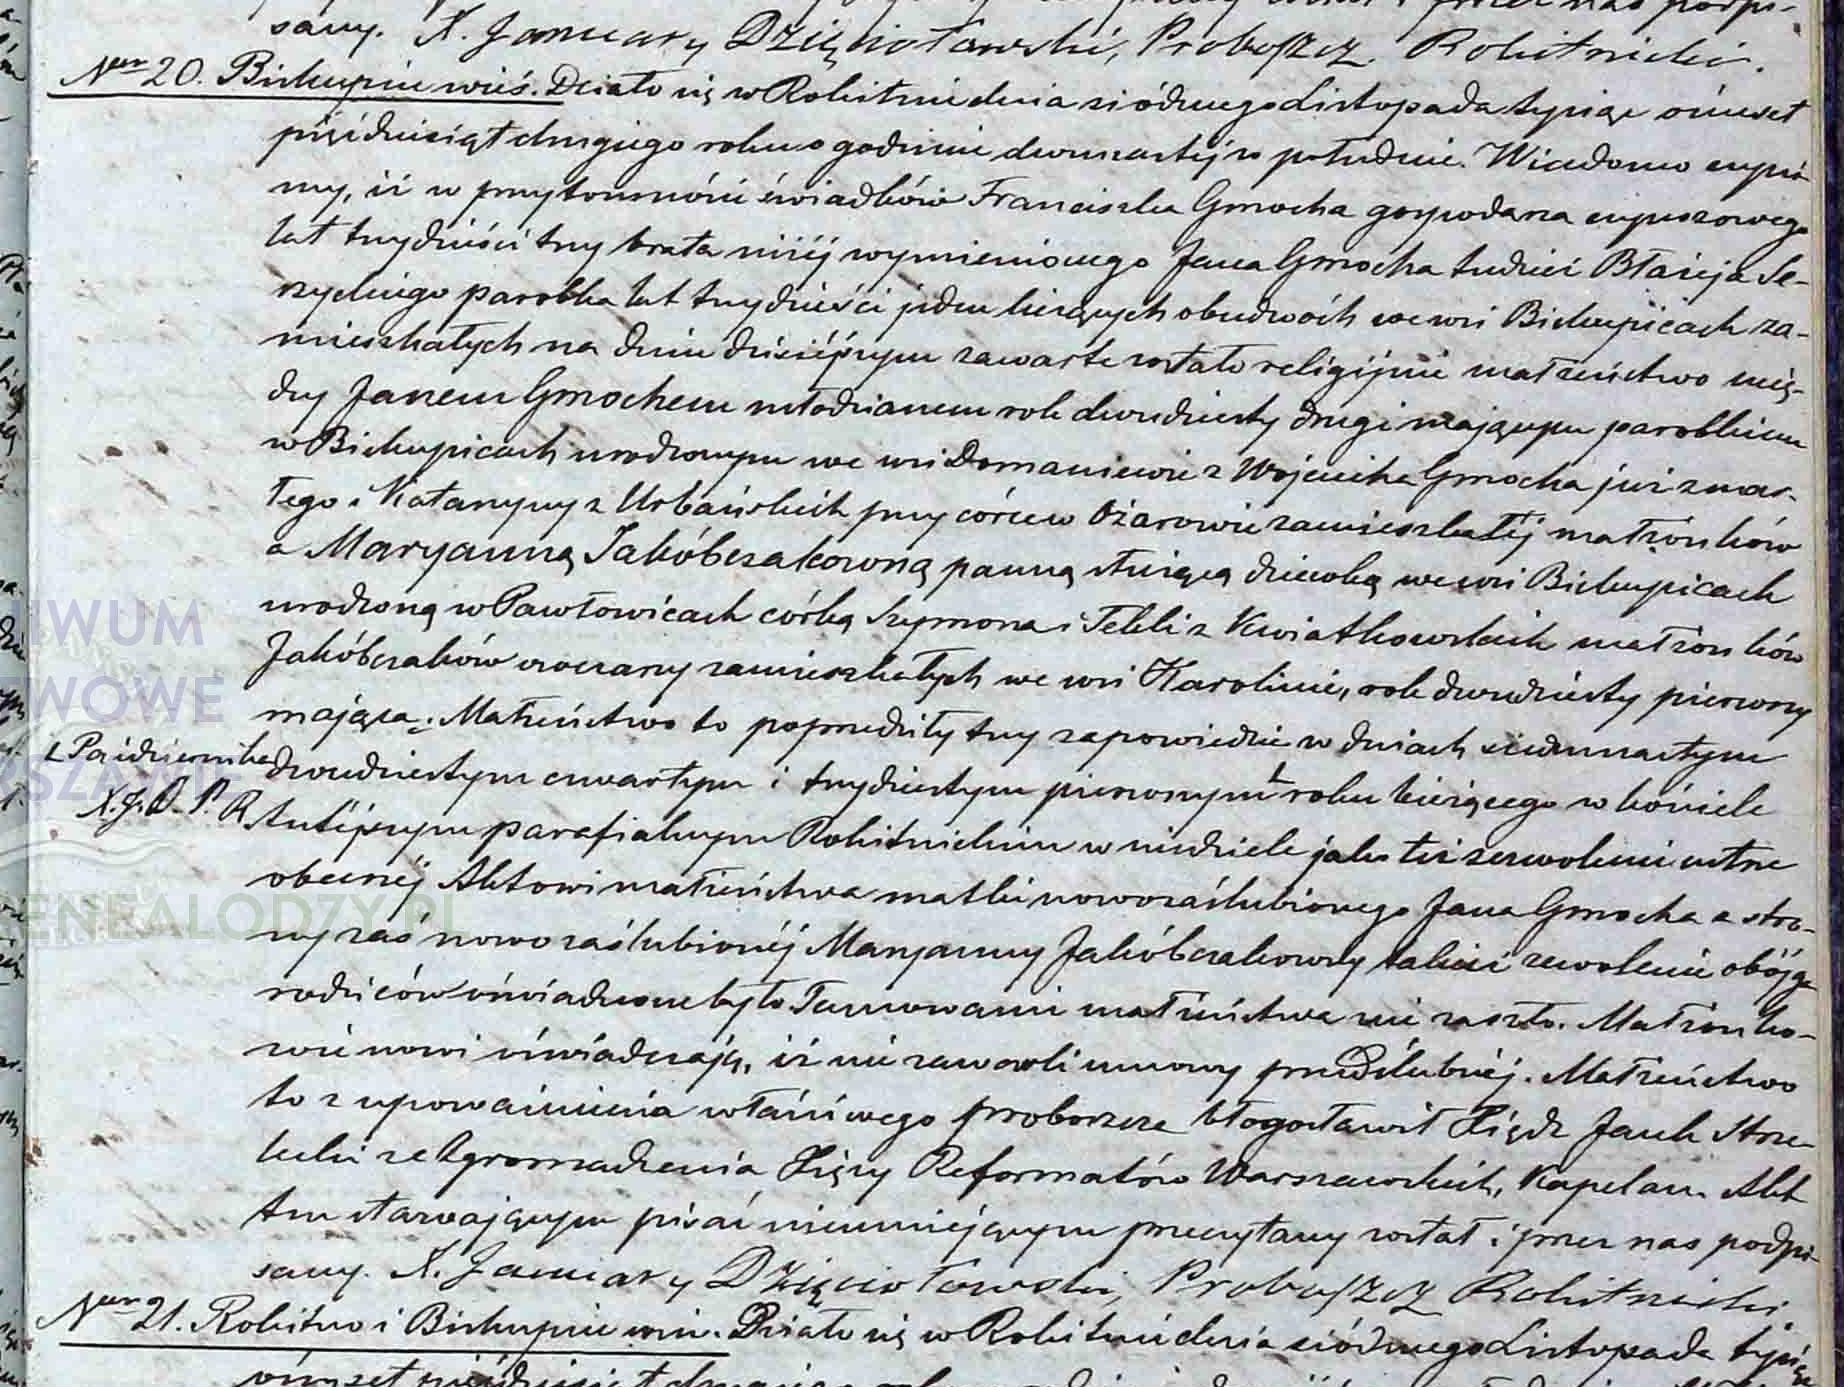 sany. X. January Dzięciołowski, Proboszcz Rokitnicki.
Num 20. Biskupice wieś. Działo się w Rokitnie dnia siódmego Listopada tysiąc ośmset
pięćdziesiąt drugiego roku o godzinie dwunastej w południe. Wiadomo czyni-
my, iż w przytomności świadków Franciszka Gmocha gospodarza czynszowego
lat trzydzieści trzy brata niżéj wymienionego Jana Gmocha tudzież Błażeja Se-
rzyckiego parobka lat trzydzieści jeden liczących obudwóch we wsi Biskupicach za-
mieszkałych na dniu dzisiéjszym zawarte zostało religijnie małżeństwo mię-
dzy Janem Gmochem młodzianem rok dwudziesty drugi mającym parobkiem
w Biskupicach urodzonym we wsi Domaniewie z Wojciecha Gmocha już zmar-
łego i Katarzyny z Urbańskich przy córce w Ożarowie zamieszkałéj małżonków
a Maryanną Jakóbczakowną panną służącą dziewką we wsi Biskupicach
urodzoną w Pawłowicach córką Szymona i Tekli z Kwiatkowskich małżonków
Jakóbczaków owczarzy zamieszkałych we wsi Karolinie, rok dwudziesty pierwszy
mającą. Małżeństwo to poprzedziły trzy zapowiedzie w dniach siedmnastym
L Października dwudziestym czwartym i trzydziestym pierwszym L roku bieżącego w kościele
X. J. D. P. R. tutéjszym parafialnym Rokitnickim w niedziele jako też zezwolenie ustne
obecnéj Aktowi małżeństwa matki nowozaślubionego Jana Gmocha a stro-
ny zaś nowozaślubionéj Maryanny Jakóbczakowny takież zezwolenie obójga
rodziców oświadczone było. Tamowanie małżeństwa nie zaszło. Małżonko-
wie nowi oświadczają, iż nie zawarli umowy przedślubnéj. Małżeństwo
to z upoważnienia właściwego proboszcza błogosławił Xiądz Jacek Strze-
lecki ze Zgromadzenia Xięży Reformatów Warszawskich, Kapelan. Akt
ten stawającym pisać nieumiejącym przeczytany został i przez nas podpi-
sany. X. January Dzięciołowski, Proboszcz Rokitnicki
Num 21. Rokitno i Biskupice wieś. Działo się w Rokitnie dnia siódmego Listopada tysiąc
ośmset pięćdziesiąt drugiego
IWUM
TWOWE
SZAWIE
ENEALODZY.PL